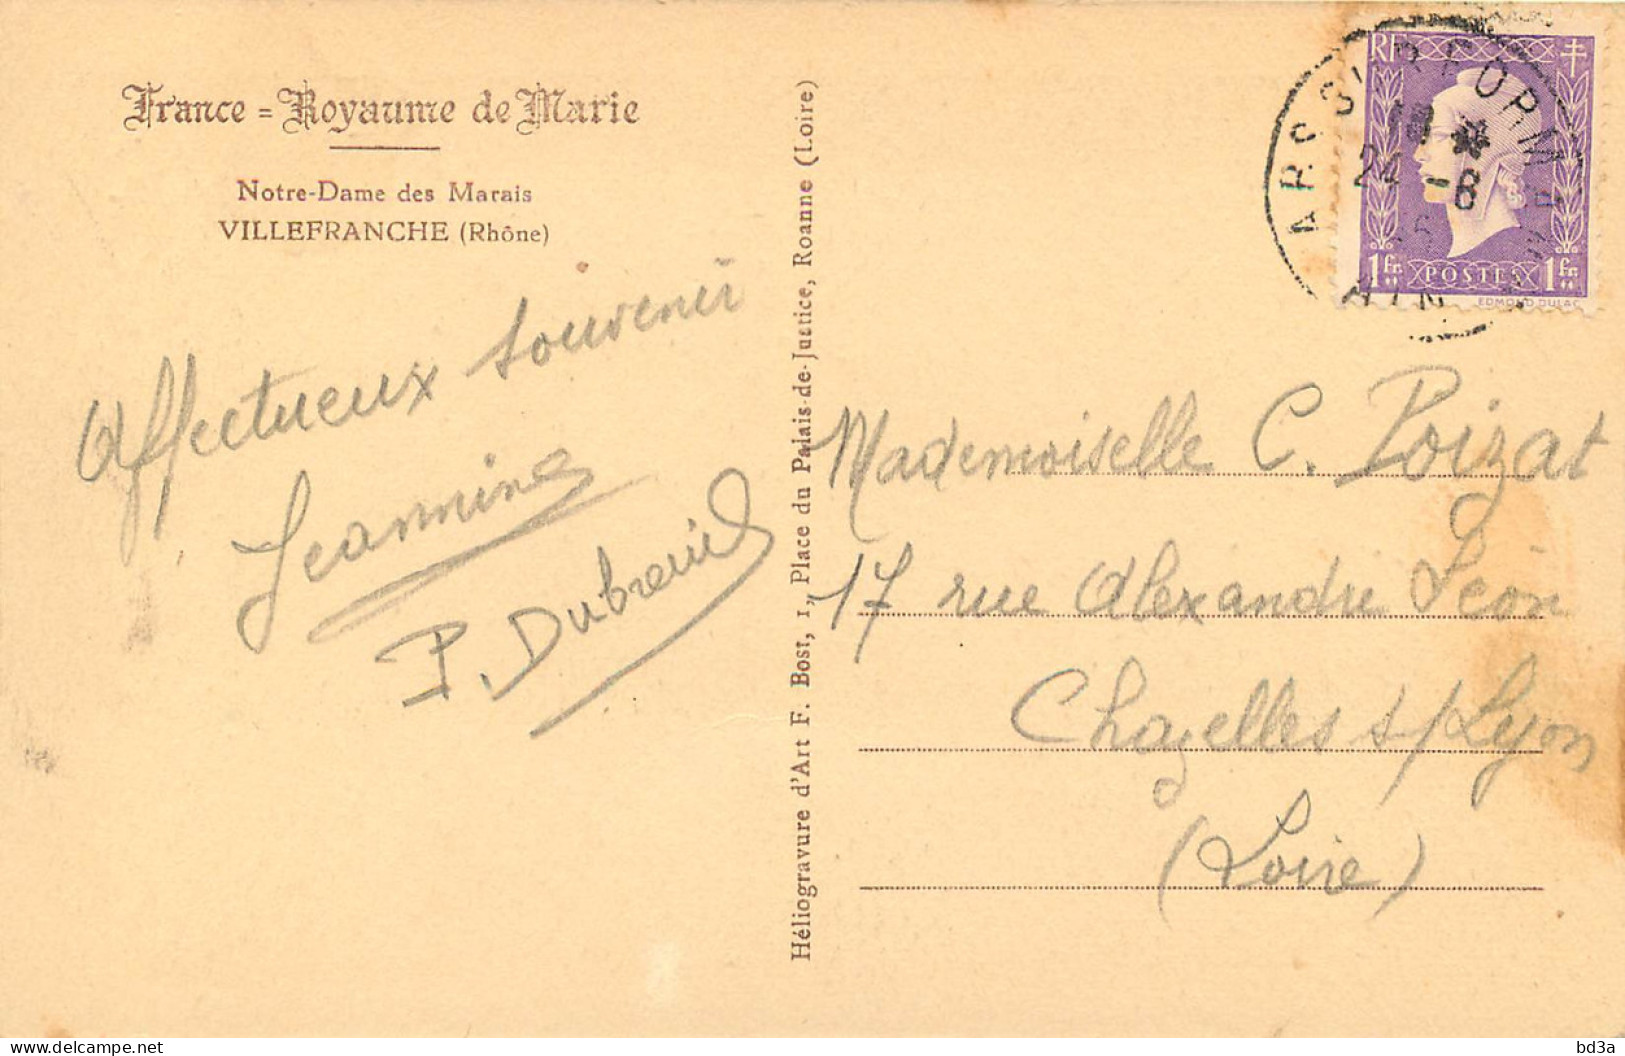 France = Royaume de Marie
Notre-Dame des Marais
VILLEFRANCHE (Rhône)
Affectueux souvenir
Jeannine
P. Dubreuil
Héliogravure d'Art F. Bost, 1, Place du Palais-de-Justice, Roanne (Loire)
ARS SUR FORM
18 *
24 -8
AIN
RF
1 fr. POSTES 1 fr.
EDMOND DULAC
Mademoiselle C. Poizat
17 rue Alexandre Léon
Chazelles s/Lyon
(Loire)
bd3a